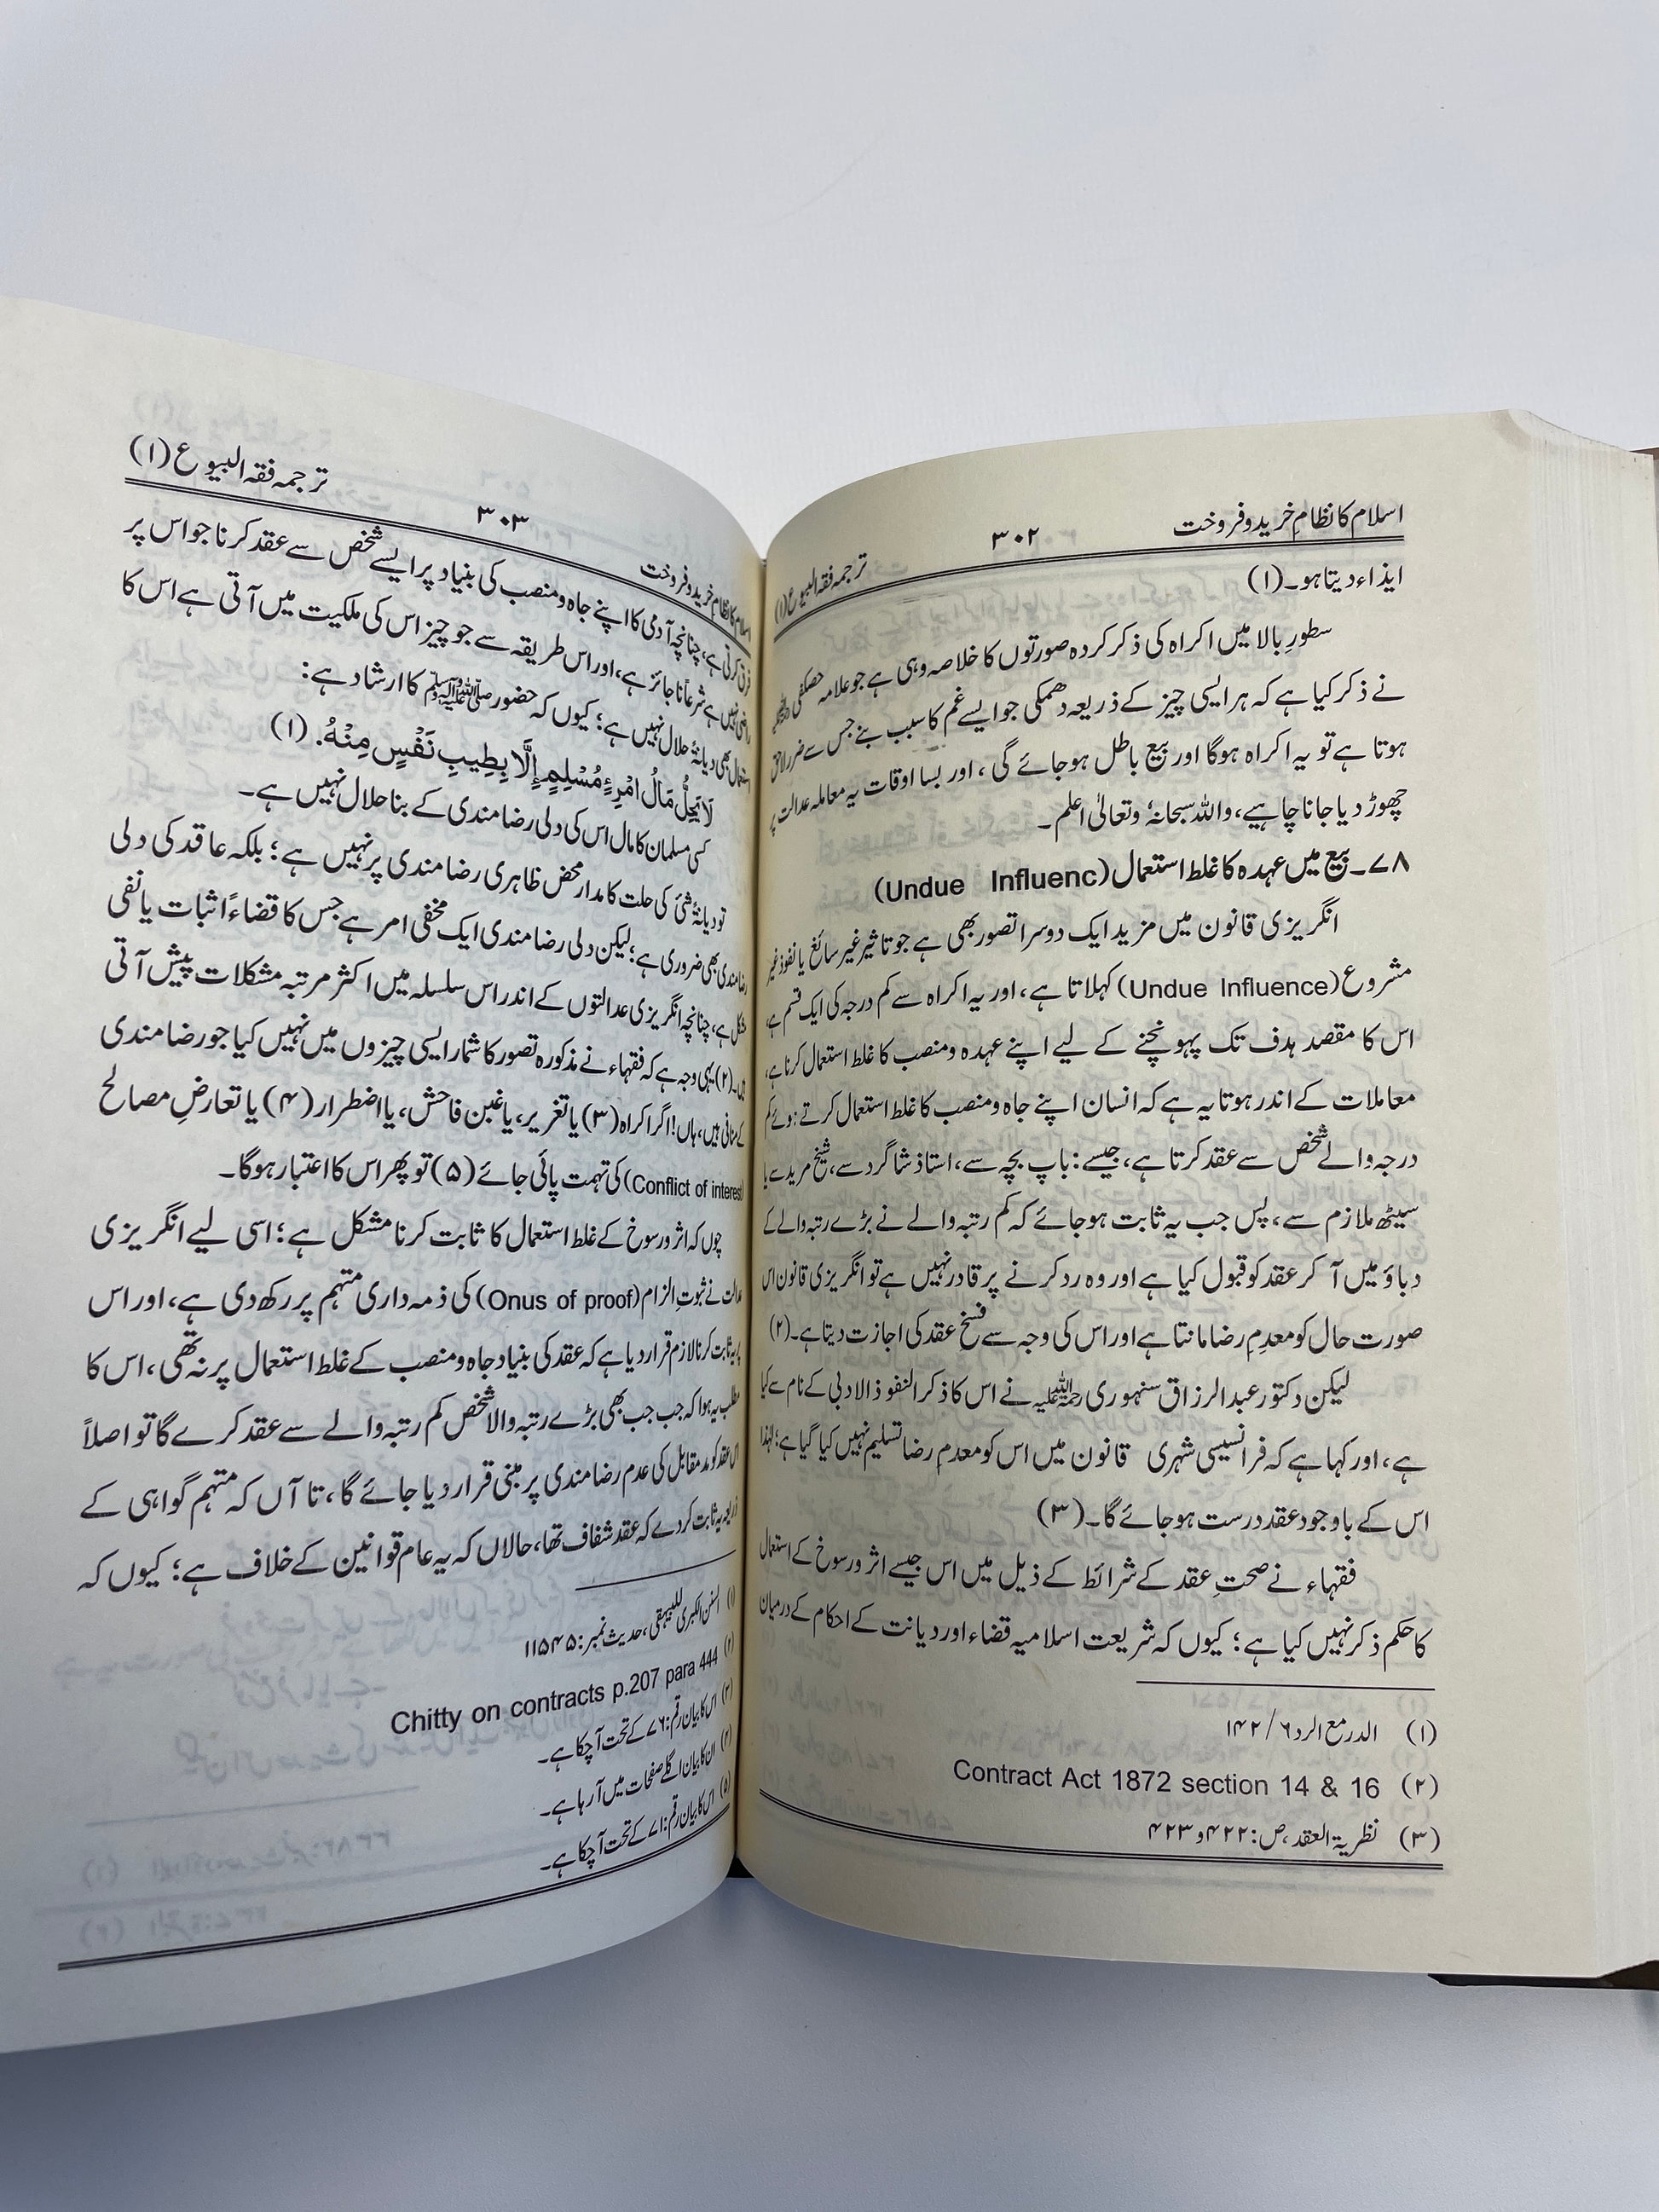 اسلام کا نظامِ خرید و فروخت ۳۰۲ ترجمہ فقہ البیوع (۱)
ایذاء دیتا ہو۔ (۱)
سطورِ بالا میں اکراہ کی ذکر کردہ صورتوں کا خلاصہ وہی ہے جو علامہ حصکفی
نے ذکر کیا ہے کہ ہر ایسی چیز کے ذریعہ دھمکی جو ایسے غم کا سبب بنے جس سے ضرر لاحق
ہوتا ہے تو یہ اکراہ ہوگا اور بیع باطل ہوجائے گی، اور بسا اوقات یہ معاملہ عدالت پر
چھوڑ دیا جانا چاہیے، واللہ سبحانہٗ وتعالیٰ اعلم۔
۷۸۔ بیع میں عہدہ کا غلط استعمال (Undue Influenc)
انگریزی قانون میں مزید ایک دوسرا تصور بھی ہے جو تاثیر غیر سائغ یا نفوذ غیر
مشروع (Undue Influence) کہلاتا ہے، اور یہ اکراہ سے کم درجہ کی ایک قسم ہے،
اس کا مقصد ہدف تک پہونچنے کے لیے اپنے عہدہ ومنصب کا غلط استعمال کرنا ہے،
معاملات کے اندر ہوتا یہ ہے کہ انسان اپنے جاہ ومنصب کا غلط استعمال کرتے ہوئے کم
درجہ والے شخص سے عقد کرتا ہے، جیسے: باپ بچہ سے، استاذ شاگرد سے، شیخ مرید سے یا
سیٹھ ملازم سے، پس جب یہ ثابت ہوجائے کہ کم رتبہ والے نے بڑے رتبہ والے کے
دباؤ میں آکر عقد کو قبول کیا ہے اور وہ رد کرنے پر قادر نہیں ہے تو انگریزی قانون اس
صورت حال کو معدِمِ رضا مانتا ہے اور اس کی وجہ سے فسخِ عقد کی اجازت دیتا ہے۔ (۲)
لیکن دکتور عبدالرزاق سنہوری رحمۃ اللہ علیہ نے اس کا ذکر النفوذ الادبی کے نام سے کیا
ہے، اور کہا ہے کہ فرانسیسی شہری قانون میں اس کو معدمِ رضا تسلیم نہیں کیا گیا ہے؛ لہٰذا
اس کے باوجود عقد درست ہوجائے گا۔ (۳)
فقہاء نے صحتِ عقد کے شرائط کے ذیل میں اس جیسے اثر ورسوخ کے استعمال
کا حکم ذکر نہیں کیا ہے؛ کیوں کہ شریعت اسلامیہ قضاء اور دیانت کے احکام کے درمیان
(۱) الدر مع الرد ۶/۱۴۲
(۲) Contract Act 1872 section 14 & 16
(۳) نظریۃ العقد، ص: ۴۲۲ و ۴۲۳
اسلام کا نظامِ خرید و فروخت ۳۰۳ ترجمہ فقہ البیوع (۱)
فرق کرتی ہے، چنانچہ آدمی کا اپنے جاہ ومنصب کی بنیاد پر ایسے شخص سے عقد کرنا جو اس پر
راضی نہیں ہے شرعاً ناجائز ہے، اور اس طریقہ سے جو چیز اس کی ملکیت میں آتی ہے اس کا
استعمال بھی دیانۃً حلال نہیں ہے؛ کیوں کہ حضور صلی اللہ علیہ وسلم کا ارشاد ہے:
لَا يَحِلُّ مَالُ امْرِءٍ مُسْلِمٍ إِلَّا بِطِيبِ نَفْسٍ مِنْهُ. (۱)
کسی مسلمان کا مال اس کی دلی رضامندی کے بنا حلال نہیں ہے۔
تو دیانۃً شئ کی حلت کا مدار محض ظاہری رضامندی پر نہیں ہے؛ بلکہ عاقد کی دلی
رضامندی بھی ضروری ہے؛ لیکن دلی رضامندی ایک مخفی امر ہے جس کا قضاءً اثبات یا نفی
مشکل ہے، چنانچہ انگریزی عدالتوں کے اندر اس سلسلہ میں اکثر مرتبہ مشکلات پیش آتی
ہیں۔ (۲) یہی وجہ ہے کہ فقہاء نے مذکورہ تصور کا شمار ایسی چیزوں میں نہیں کیا جو رضامندی
کے منافی ہیں، ہاں! اگر اکراہ (۳) یا تغریر، یا غبن فاحش، یا اضطرار (۴) یا تعارضِ مصالح
(Conflict of interest) کی تہمت پائی جائے (۵) تو پھر اس کا اعتبار ہوگا۔
چوں کہ اثر ورسوخ کے غلط استعمال کا ثابت کرنا مشکل ہے؛ اسی لیے انگریزی
عدالت نے ثبوتِ الزام (Onus of proof) کی ذمہ داری متہم پر رکھ دی ہے، اور اس
پر یہ ثابت کرنا لازم قرار دیا ہے کہ عقد کی بنیاد جاہ ومنصب کے غلط استعمال پر نہ تھی، اس کا
مطلب یہ ہوا کہ جب جب بھی بڑے رتبہ والا شخص کم رتبہ والے سے عقد کرے گا تو اصلاً
اس عقد کو مد مقابل کی عدم رضامندی پر مبنی قرار دیا جائے گا، تا آں کہ متہم گواہی کے
ذریعہ یہ ثابت کردے کہ عقد شفاف تھا، حالاں کہ یہ عام قوانین کے خلاف ہے؛ کیوں کہ
(۱) السنن الکبریٰ للبیہقی، حدیث نمبر: ۱۱۵۴۵
(۲) Chitty on contracts p.207 para 444
(۳) اس کا بیان رقم: ۷۶ کے تحت آچکا ہے۔
(۴) ان کا بیان اگلے صفحات میں آرہا ہے۔
(۵) اس کا بیان رقم: ۷۱ کے تحت آچکا ہے۔